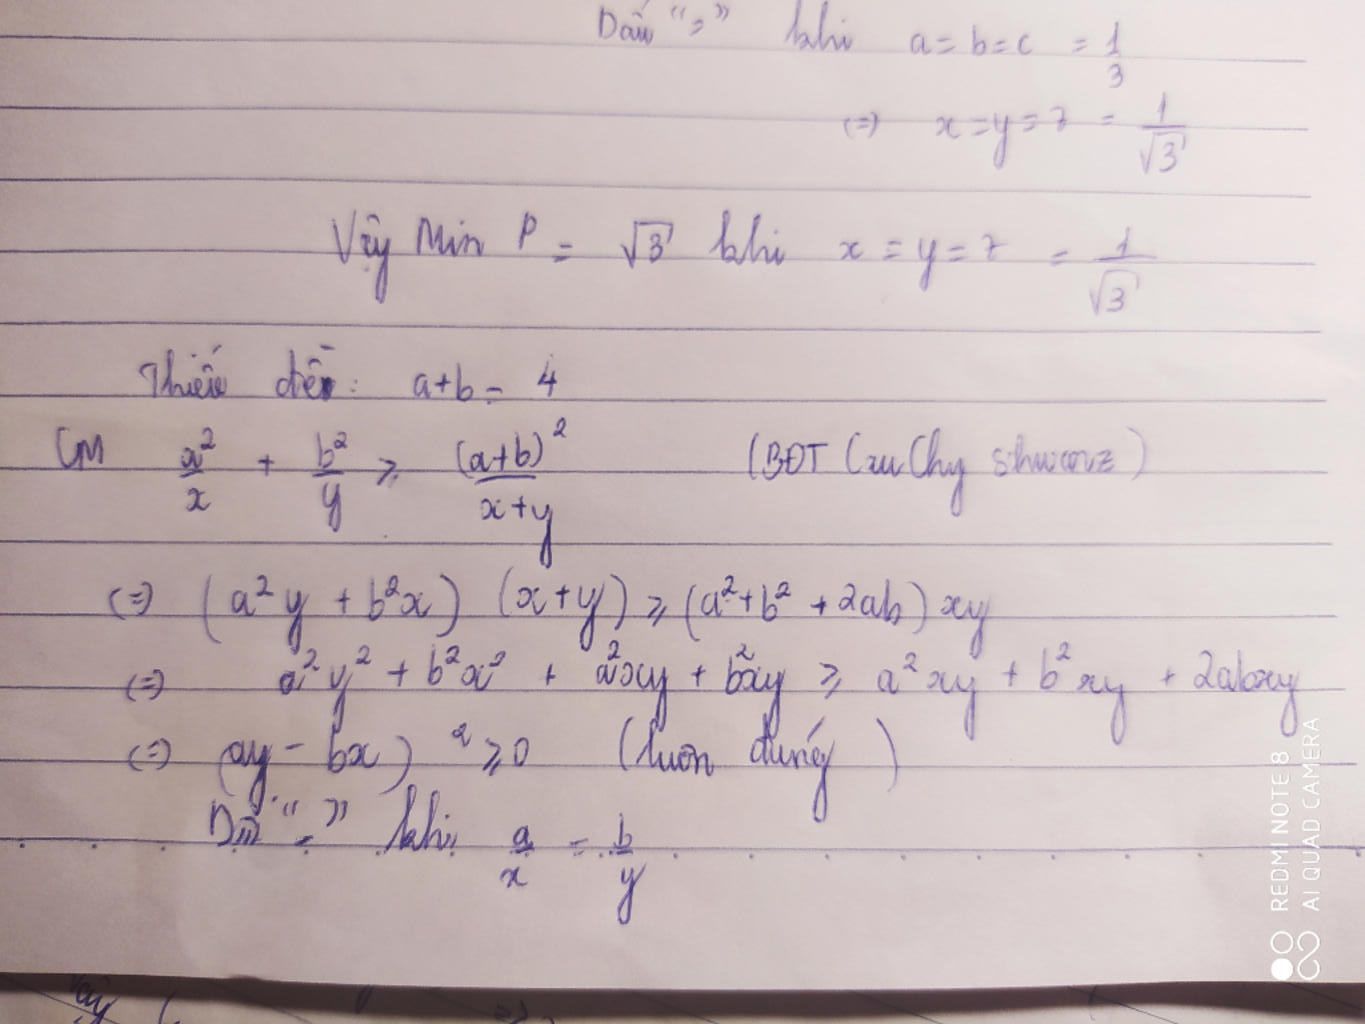 Dấu "=" khi a = b = c = 1/3
(=) x = y = z = 1/√3
Vậy Min P = √3 khi x = y = z = 1/√3
Thiếu đề: a+b = 4
CM a²/x + b²/y ≥ (a+b)²/(x+y) (BĐT Cauchy schwarz)
(=) (a²y + b²x) (x+y) ≥ (a²+b² + 2ab) xy
(=) a²y² + b²x² + a²xy + b²xy ≥ a²xy + b²xy + 2abxy
(=) (ay - bx)² ≥ 0 (luôn đúng)
Dấu "=" khi a/x = b/y
REDMI NOTE 8
AI QUAD CAMERA